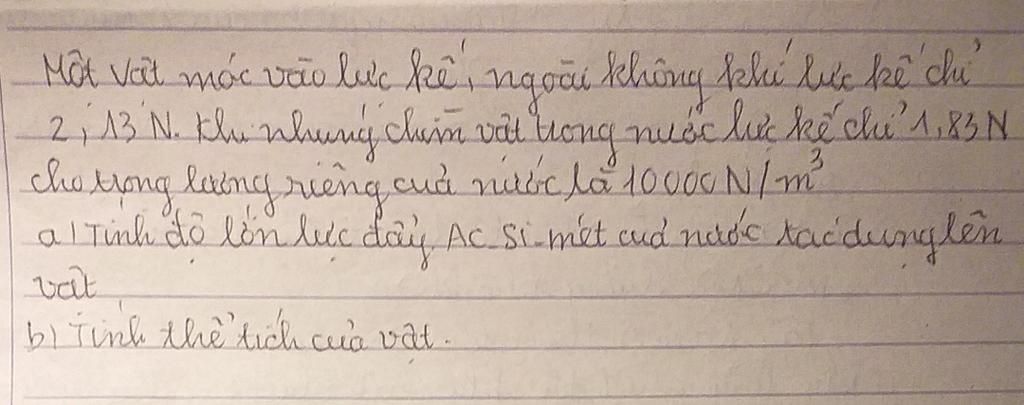 Một vật móc vào lực kế, ngoài không khí lực kế chỉ
2,13 N. Khi nhúng chìm vật trong nước lực kế chỉ 1,83 N
cho trọng lượng riêng của nước là 10000 N/m³
a) Tính độ lớn lực đẩy Ac-Si-mét của nước tác dụng lên
vật
b) Tính thể tích của vật.